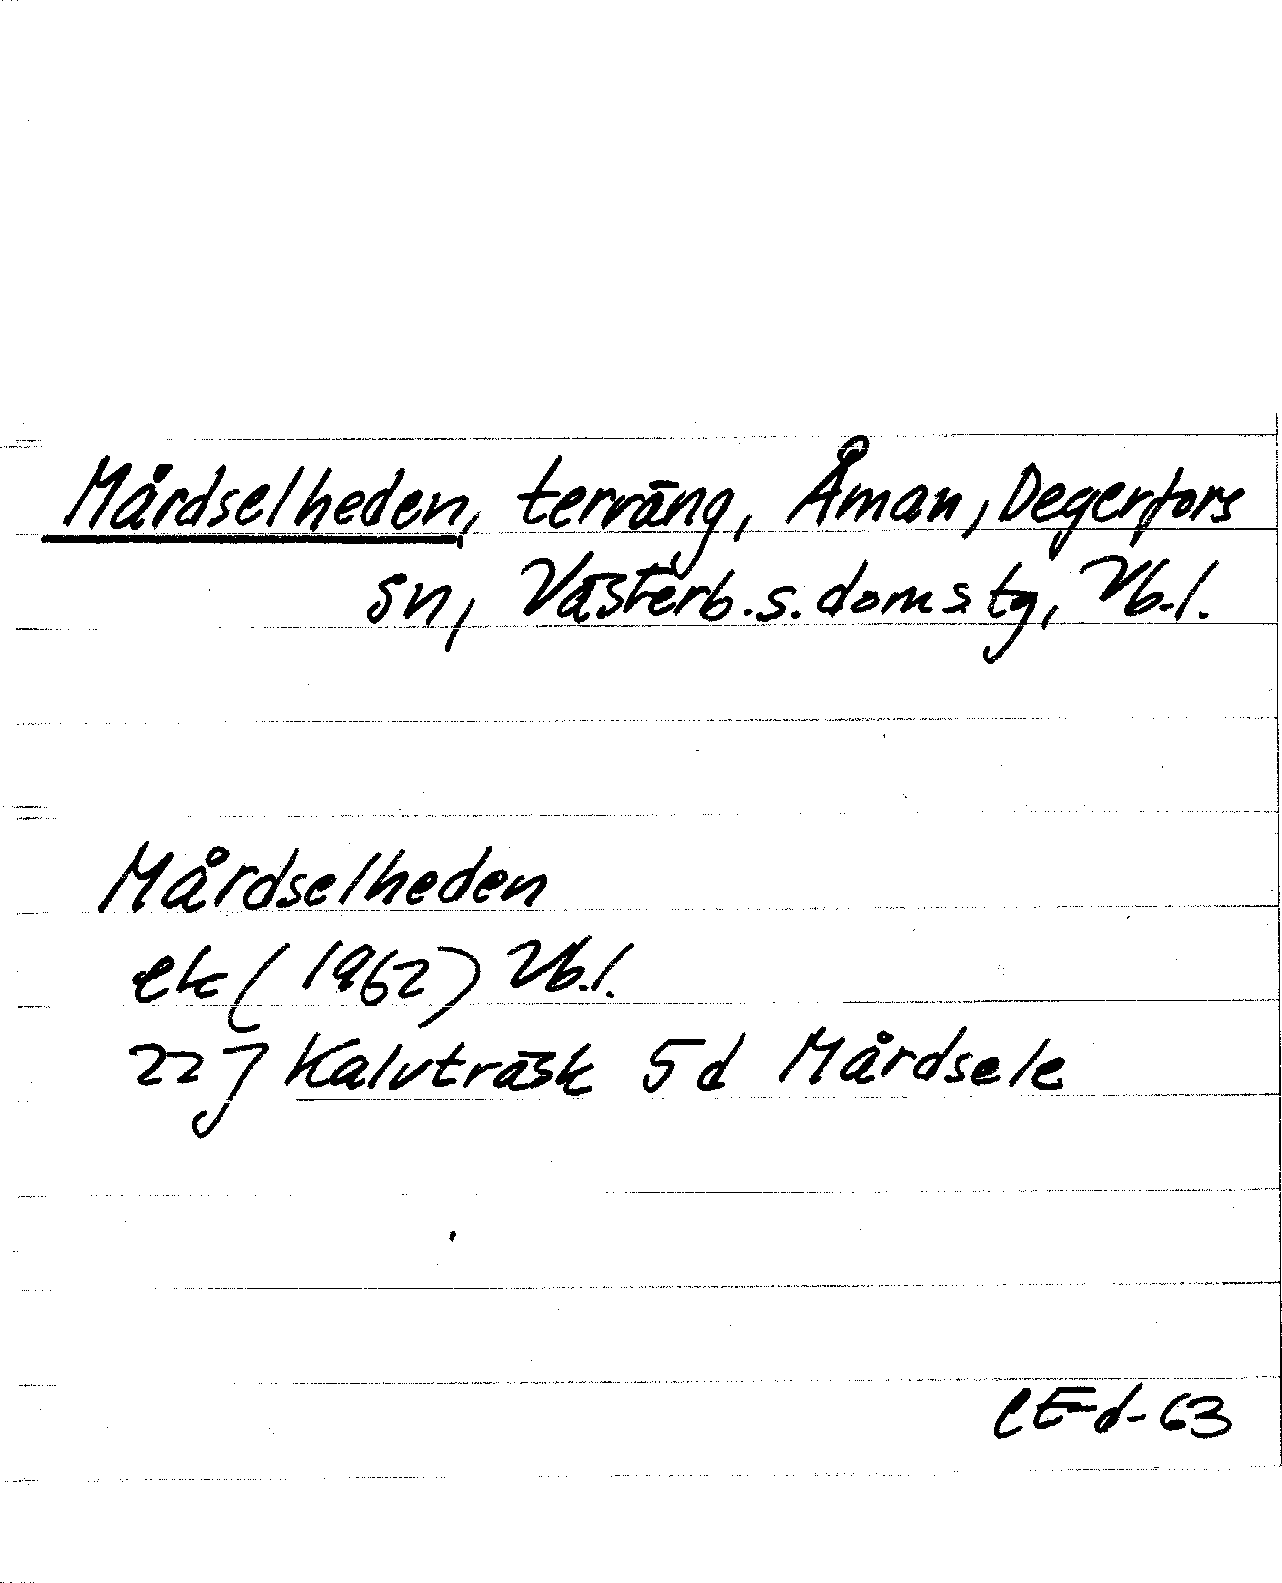 Mårdselheden, terräng, Åman, Degerfors
sn, Västerb. s. domstg, Vb.l.
Mårdselheden
ek (1962) Vb.l.
22 J Kalvträsk 5d Mårdsele
CEd-63